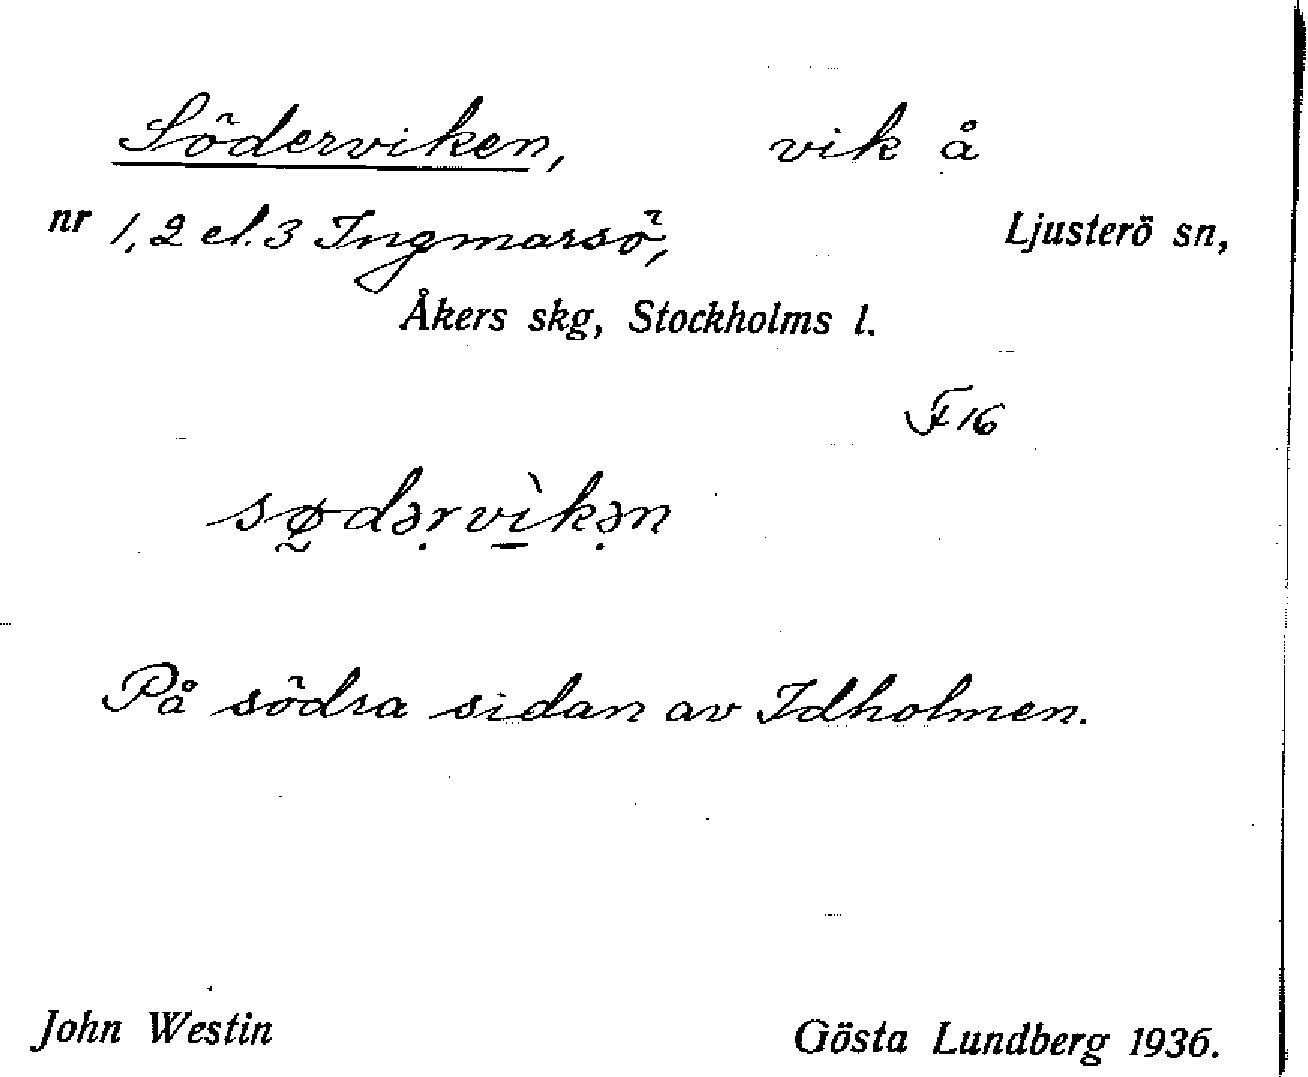 Söderviken, vik å
nr 1, 2 el. 3 Ingmarsö, Ljusterö sn,
Åkers skg, Stockholms l.
F 16
sø̰də̣rvì̱kə̣n
På södra sidan av Idholmen.
John Westin Gösta Lundberg 1936.